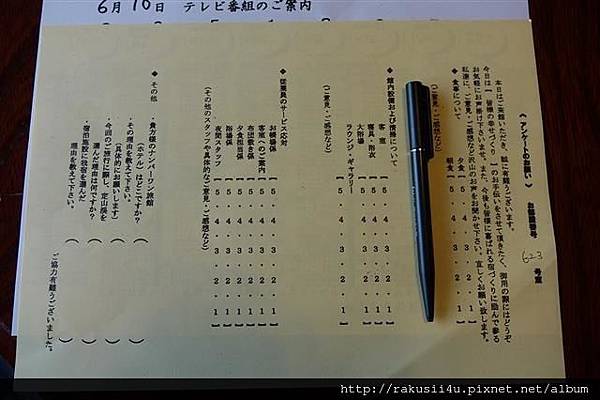 6月10日　テレビ番組のご案内
《 アンケートのお願い 》　お部屋番号　623　号室
本日はご来館いただき、誠に有難うございます。
今日は【 皆様の幸せづくり 】のお手伝いをさせて頂きたく、御用の際にはどうぞ
お気軽にお声掛け下さいませ。また、今後も皆様に喜ばれる宿づくりに励んで参る
私達に、ご意見・ご感想など沢山のお声をお聞かせ下さい。宜しくお願い致します。
◆ 食事について
夕食【 5・4・3・2・1 】
朝食【 5・4・3・2・1 】
(ご意見・ご感想など)
◆ 館内設備および清掃について
客室【 5・4・3・2・1 】
寝具・浴衣【 5・4・3・2・1 】
大浴場【 5・4・3・2・1 】
ラウンジ・ギャラリー【 5・4・3・2・1 】
(ご意見・ご感想など)
◆ 従業員のサービス応対
お帳場係【 5・4・3・2・1 】
客室へのご案内【 5・4・3・2・1 】
布団敷き係【 5・4・3・2・1 】
夕食担当係【 5・4・3・2・1 】
浴場係【 5・4・3・2・1 】
夜間スタッフ【 5・4・3・2・1 】
(その他のスタッフや具体的なご意見・ご感想など)
◆ その他
・貴方様のナンバーワン旅館
(ホテル)はどこですか？(　　)
その理由を教えて下さい。
(具体的にお願いします)(　　)
・今回のご旅行に際し、定山渓を
選んだ理由は何ですか？(　　)
・宿泊施設に我宿を選んだ
理由を教えて下さい。(　　)
ご協力有難うございました。
http://rakusii4u.pixnet.net/album